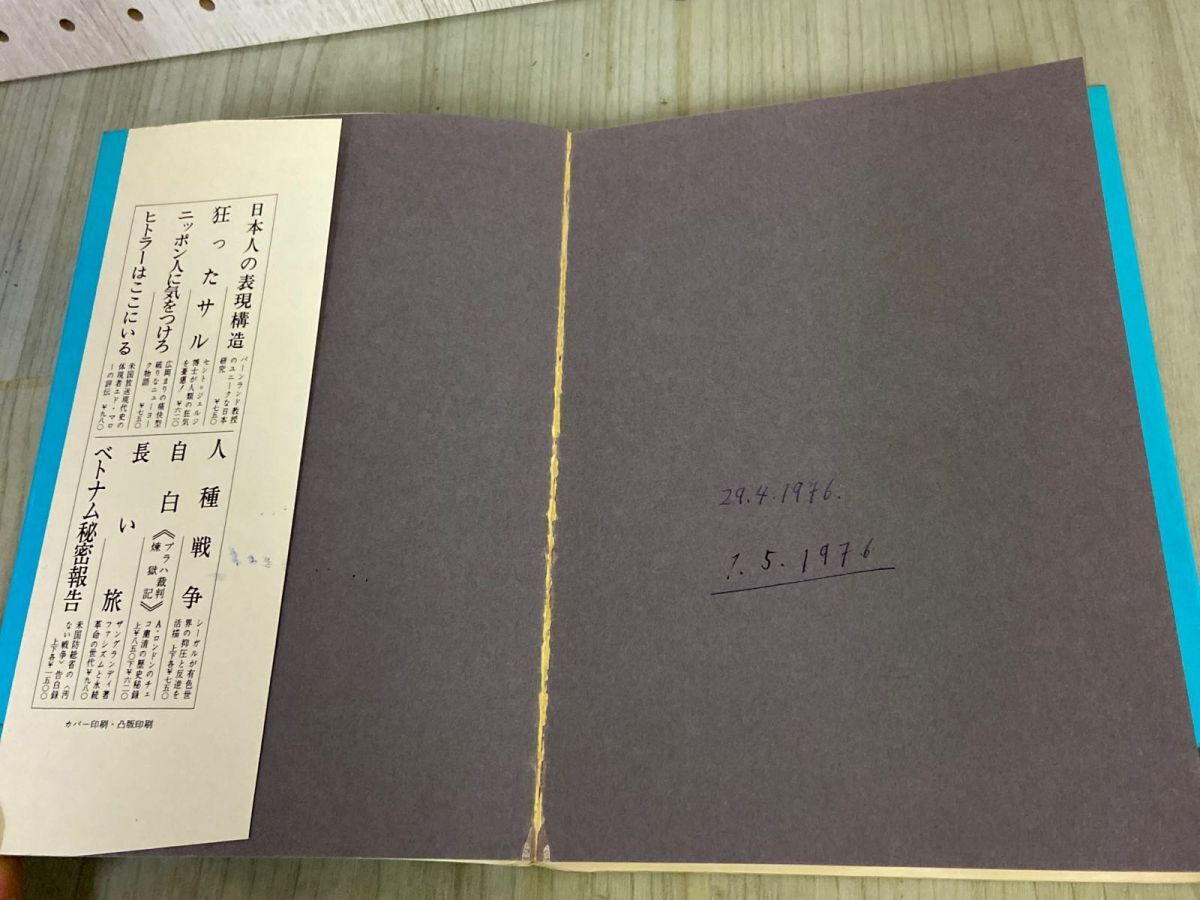 日本人の表現構造
バーンランド教授
のユニークな日本
研究 ¥七五〇
狂ったサル
セント=ジェルジ
博士が人類の狂気
を憂慮! ¥六二〇
ニッポン人に気をつけろ
広岡まりの痛快型
破りなニューヨー
ク物語 ¥七五〇
ヒトラーはここにいる
米国放送現代史の
体現者エド・マロ
ーの評伝 ¥九八〇
人種戦争
シーガルが有色世
界の抑圧と反逆を
活描 上下各¥七五〇
自白《プラハ裁判煉獄記》
A・ロンドンのチェ
コ粛清の歴史秘録
上¥八五〇下¥六二〇
長い旅
ザングランディ著
ファシズムと永続
革命の世代 ¥九八〇
ベトナム秘密報告
米国防総省の〈汚
ない戦争〉告白録
上下各¥一五〇〇
カバー印刷・凸版印刷
29.4.1976.
1.5.1976